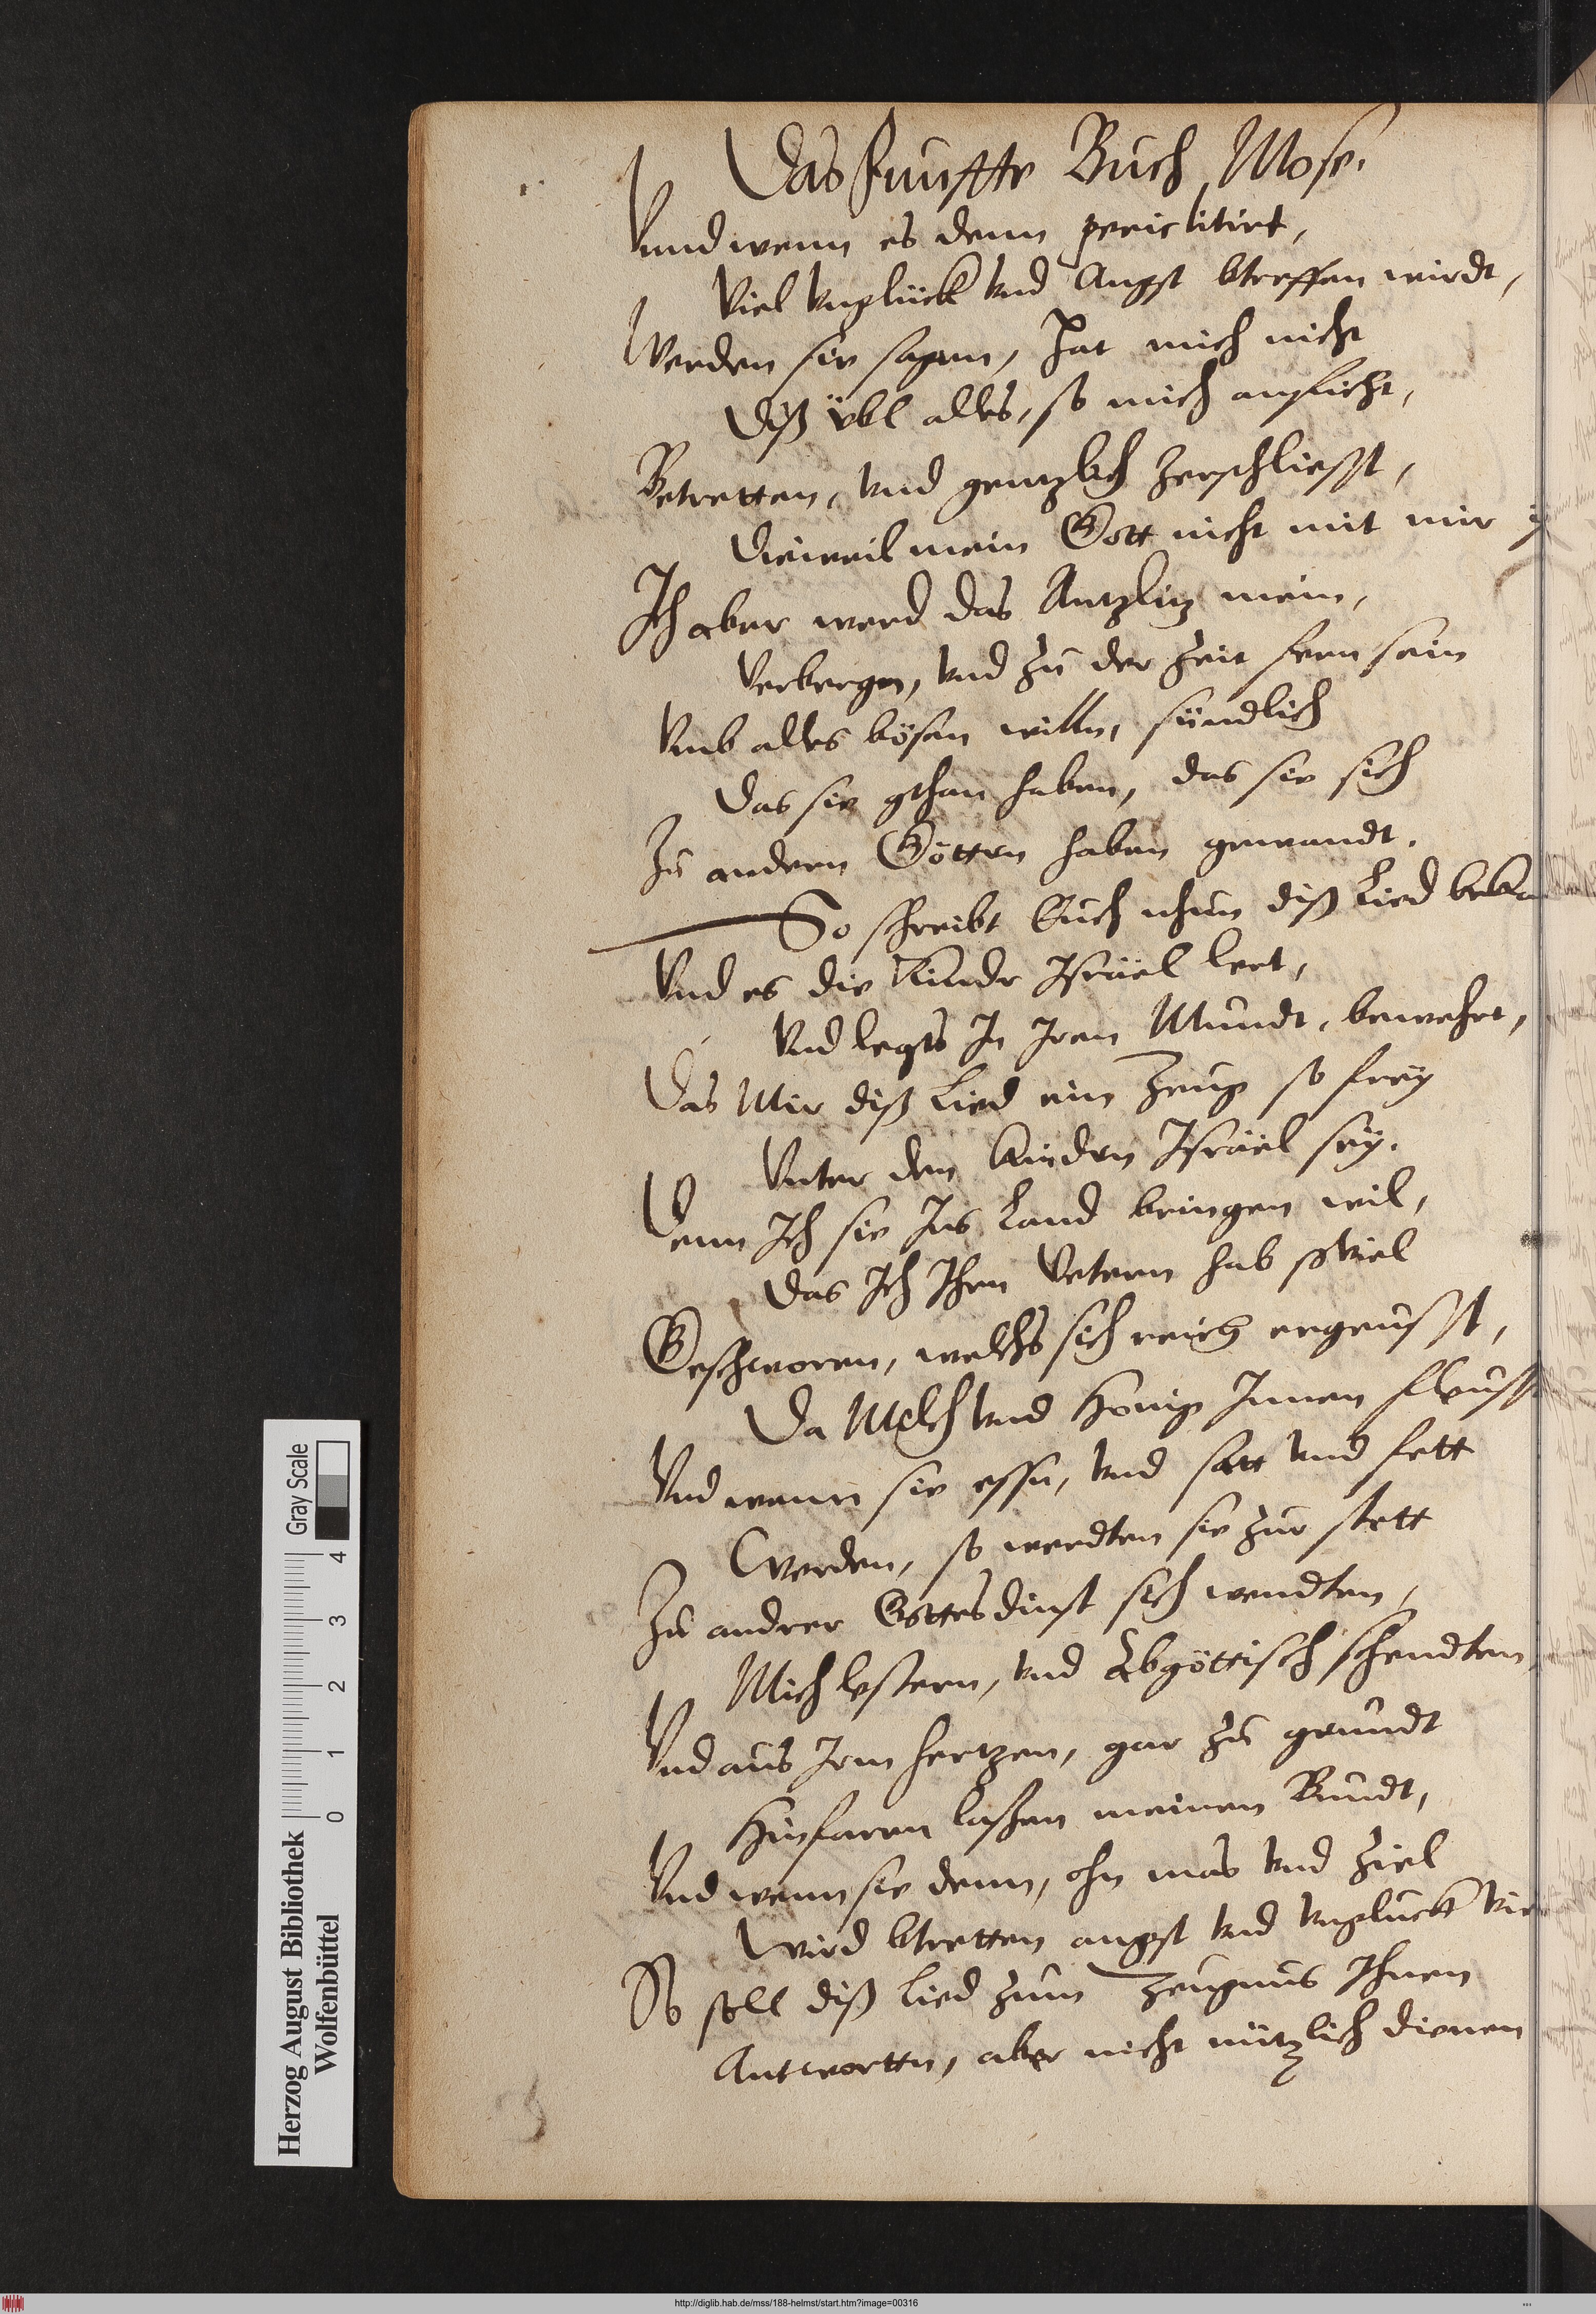 Das funffte Buch Mose.
Unnd wenn es denn periclitirt,
Viel unglück vnd Angst btreffen wirdt,
Werden sie sagenn, Hat mich nicht
Diß übl alles, so mich anficht,
Betretten, vnd gentzlich zerschliesst,
Dieweil mein Gott nicht mit mir
Ich aber werd das Antzlitz mein,
Verbergen, vnd zu der Zeit fern sein
Vmb alles bösen willn, sündlich
Das sie gthan haben, das sie sich
Zu andern Göttern haben gewandt.
So schreibt Euch nhun diß Lied
Vnd es die Kinder Israël lert,
Vnd legts In Iren Mundt, bewehrt,
Das Mir diß Lied ein Zeug so frey
Vnter den Kindern Israël sey.
Denn Ich sie Ins Land bringen wil,
Das Ich Ihren Vetern hab soviel
Geschworen, welchs sich reich ergeusst,
Da Milch vnd Honig Innen fleusst
Vnd wenn sie essn, vnd satt vnd fett
Werden, so werdten sie zur stett
Zu andrer Gottesdinst sich wendten,
Mich lestern, vnd Abgöttisch schendten
Vnd aus Irm hertzen, gar zu grundt
Hinfaren lassen meinen Bundt,
Vnd wenn sie denn, ohn mas vnd Ziel
Wird btretten angst vnd vngluck
So soll diß Lied zum Zeugnus Ihnen
Antwortten, aber nicht nützlich dienen
Herzog August Bibliothek
Wolfenbüttel
0 1 2 3 4
Gray Scale
http://diglib.hab.de/mss/188-helmst/start.htm?image=00316